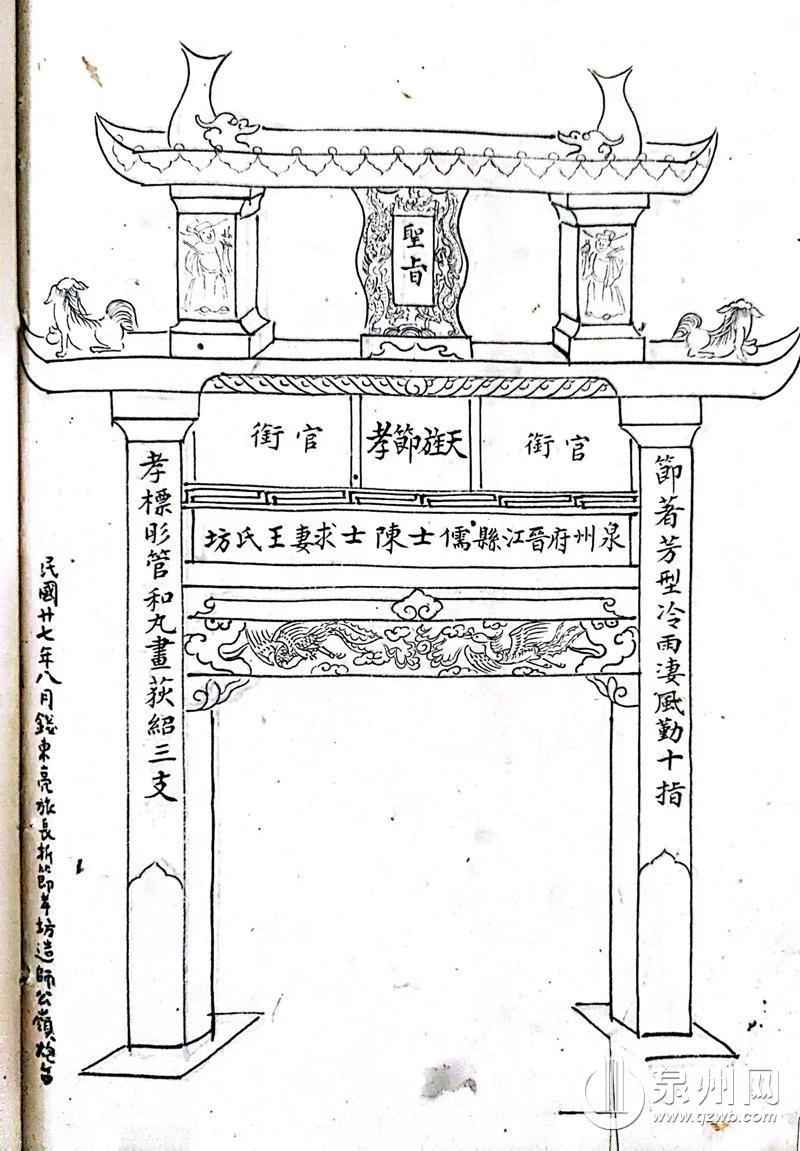 聖旨
官銜
天旌節孝
官銜
泉州府晉江縣儒士陳士求妻王氏坊
節著芳型冷雨淒風勤十指
孝標彤管和丸畫荻紹三支
民國廿七年八月錢東亮旅長折節孝坊造師公嶺炮台
泉州网
www.qzwb.com